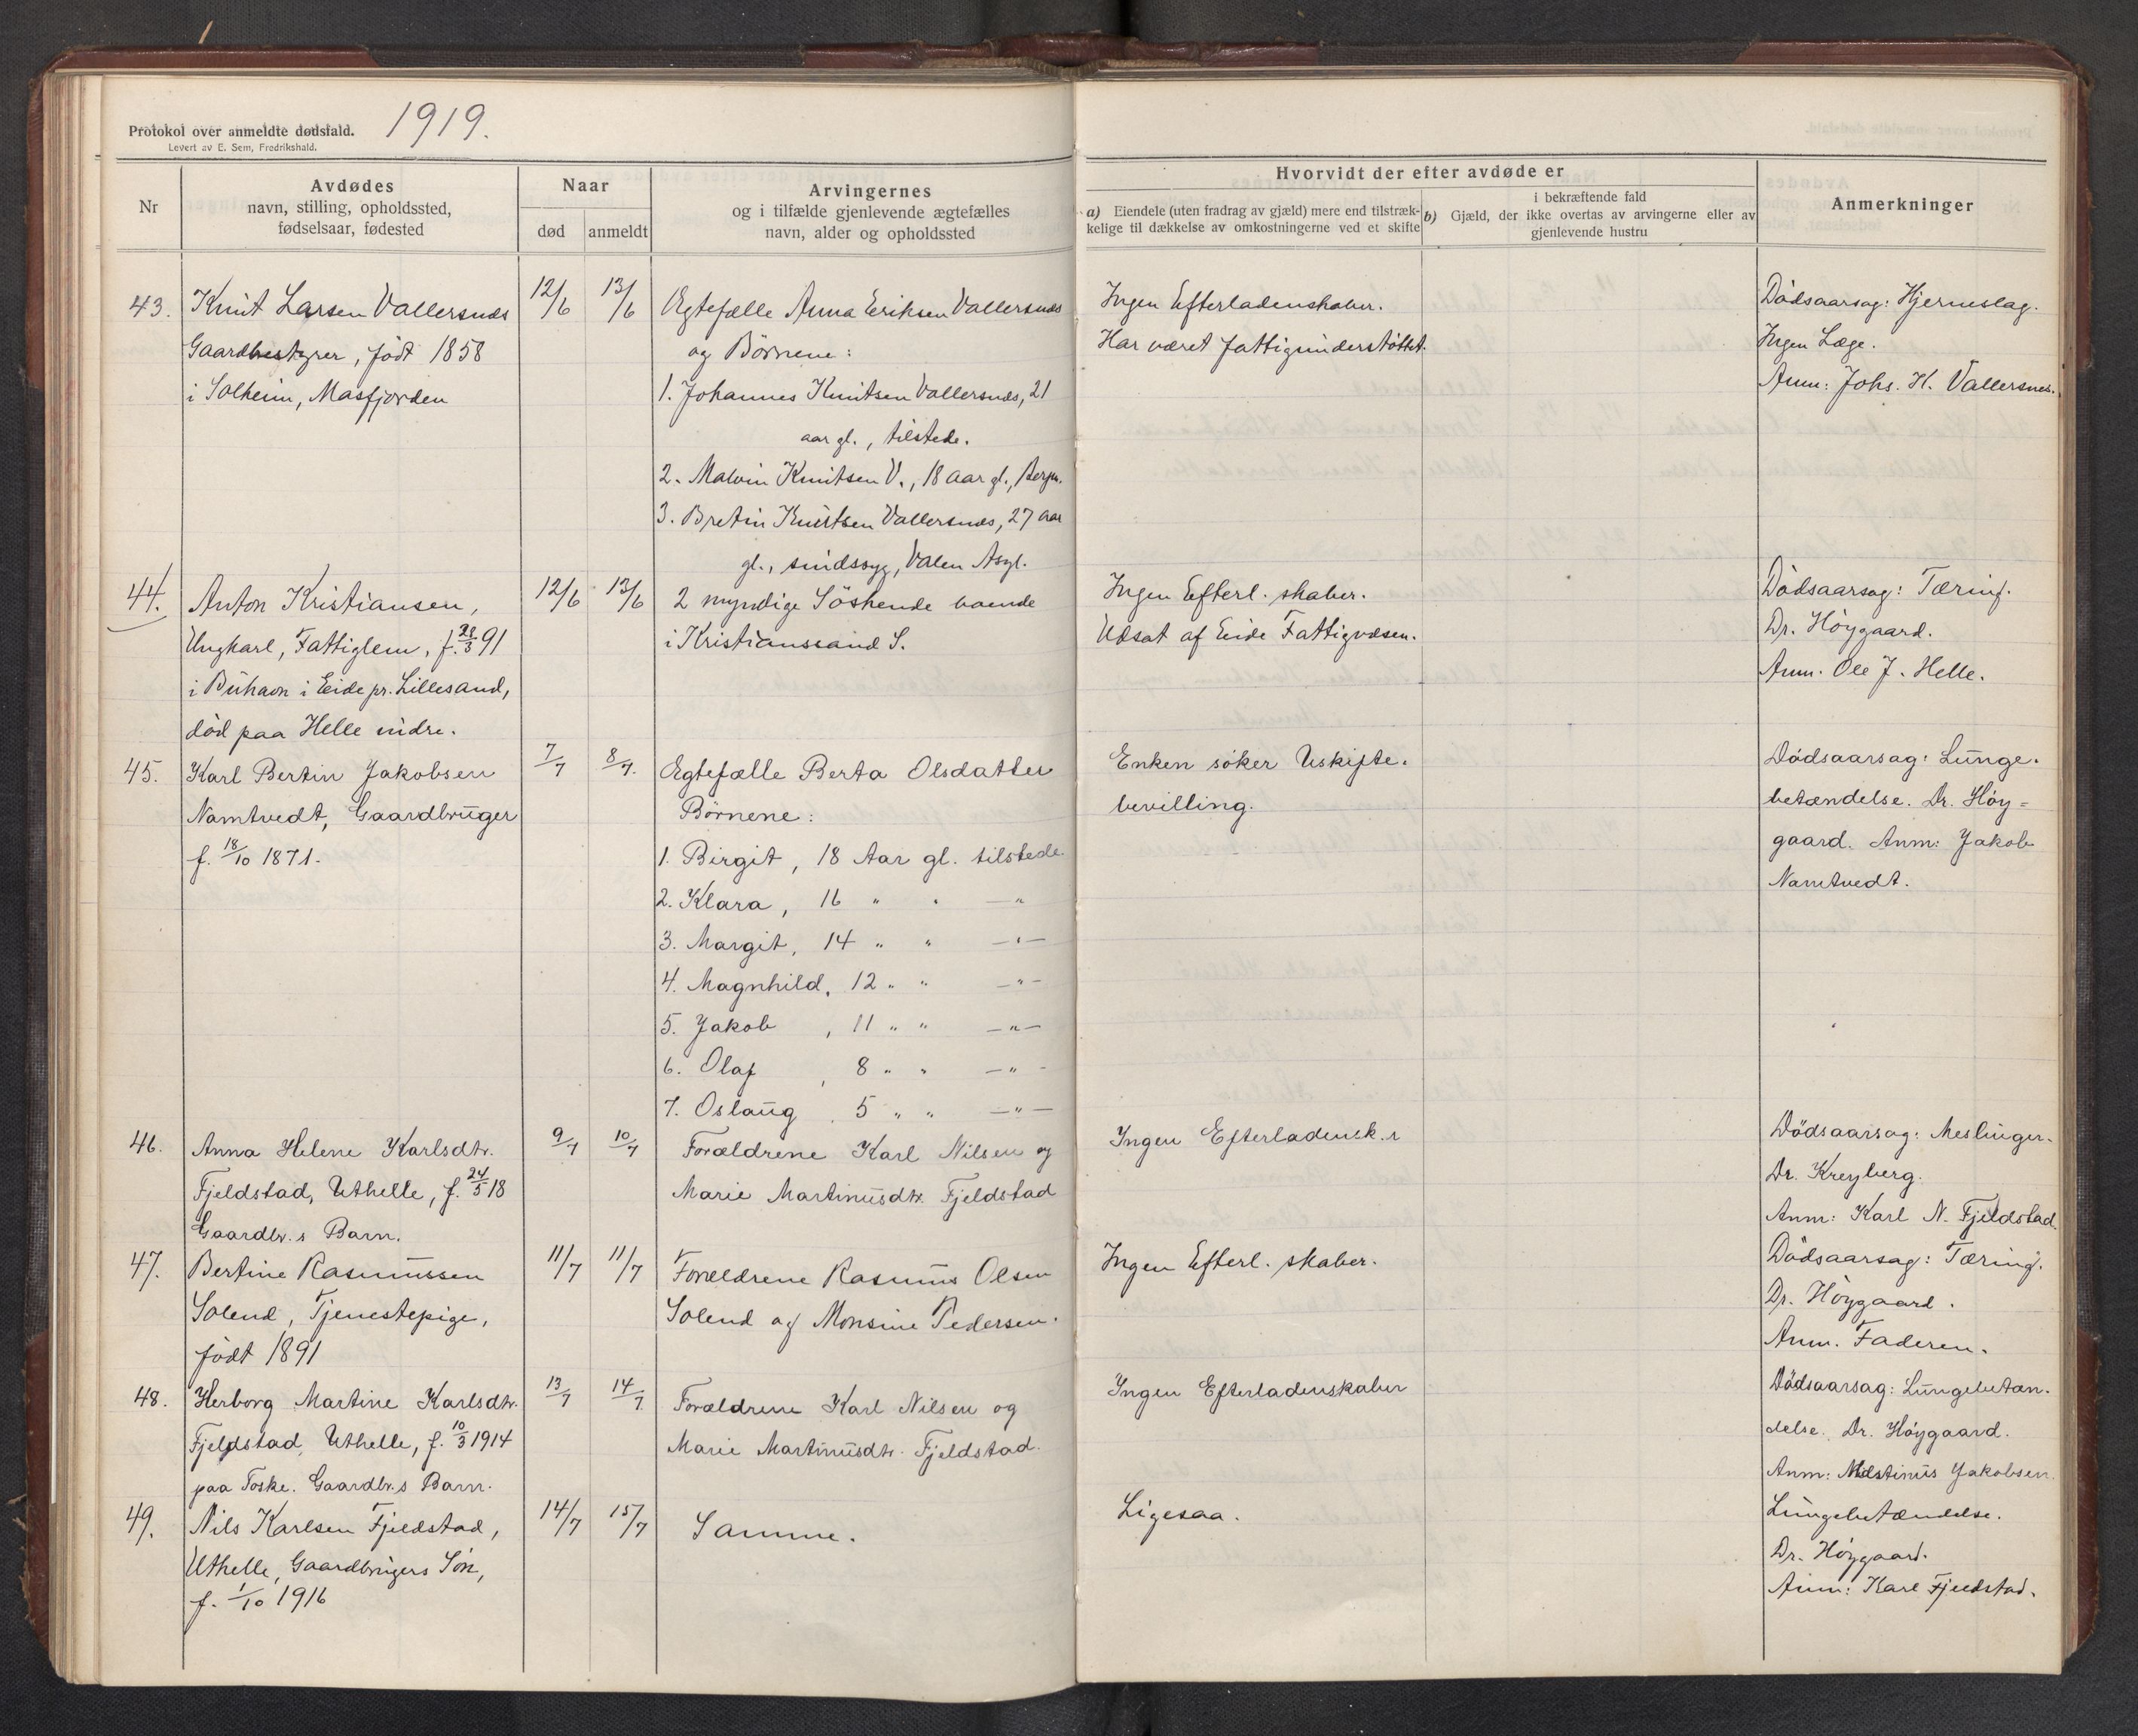 Protokol over anmeldte dødsfald.
1919.
Levert av E. Sem, Fredrikshald.
Nr
Avdødes
navn, stilling, opholdssted,
fødselsaar, fødested
Naar
død
anmeldt
Arvingernes
og i tilfælde gjenlevende ægtefælles
navn, alder og opholdssted
Hvorvidt der efter avdøde er
a) Eiendele (uten fradrag av gjæld) mere end tilstræk-
kelige til dækkelse av omkostningerne ved et skifte
i bekræftende fald
b) Gjæld, der ikke overtas av arvingerne eller av
gjenlevende hustru
Anmerkninger
43.
Knut Larsen Vallersnes
Gaardbestyrer, født 1858
i Solheim, Masfjorden
12/6
13/6
Ægtefælle Anna Eriksen Vallersnes
og Børnene:
1. Johannes Knutsen Vallersnes, 21
aar gl., tilstede.
2. Malvin Knutsen V., 18 aar gl., Bergen.
3. Bretin Knutsen Vallersnes, 27 aar
gl., sindssyg, Valen Asyl.
Ingen Efterladenskaber.
Har været fattigunderstøttet.
Dødsaarsag: Hjerneslag.
Ingen Læge.
Anm: Johs. H. Vallersnes.
44.
Anton Kristiansen,
Ungkarl, Fattiglem, f. 28/3 91
i Buhavn i Eide pr. Lillesand,
død paa Helle indre.
12/6
13/6
2 myndige Söskende boende
i Kristianssand S.
Ingen Efterl. skaber.
Udsat af Eide Fattigvæsen.
Dødsaarsag: Tæring.
Dr. Höygaard.
Anm. Ole J. Helle.
45.
Karl Bertin Jakobsen
Namtvedt, Gaardbruger
f. 18/10 1871.
7/7
8/7.
Ægtefælle Berta Olsdatter
Börnene:
1. Birgit, 18 Aar gl. tilstede.
2. Klara, 16 " " — "
3. Margit, 14 " " — " —
4. Magnhild, 12 " " — " —
5. Jakob, 11 " " — " —
6. Olaf, 8 " " — " -
7. Oslaug, 5 " " — " —
Enken søker Uskifte-
bevilling.
Dødsaarsag: Lunge-
betændelse. Dr. Höy=
gaard. Anm: Jakob
Namtvedt.
46.
Anna Helene Karlsdtr.
Fjeldstad, Uthelle, f. 24/5 18
Gaardbr.s Barn.
9/7
10/7
Forældrene Karl Nilsen og
Marie Martinusdtr. Fjeldstad
Ingen Efterladensk.r
Dödsaarsag: Meslinger.
Dr. Kreyberg.
Anm: Karl N. Fjeldstad.
47.
Bertine Rasmussen
Solend, Tjenestepige,
födt 1891
11/7
11/7
Forældrene Rasmus Olsen
Solend og Monsine Pedersen.
Ingen Efterl. skaber.
Dödsaarsag: Tæring.
Dr. Höygaard.
Anm. Faderen.
48.
Herborg Martine Karlsdtr.
Fjeldstad, Uthelle, f. 10/3 1914
paa Toske. Gaardbr.s Barn.
13/7
14/7
Forældrene Karl Nilsen og
Marie Martinusdtr. Fjeldstad.
Ingen Efterladenskaber
Dødsaarsag: Lungebetæn-
delse. Dr. Höygaard.
Anm: Jakobsen.
49.
Nils Karlsen Fjeldstad,
Uthelle, Gaardbrugers Sön,
f. 1/10 1916
14/7
15/7
Samme.
Ligesaa.
Lungebetændelse.
Dr. Höygaard.
Anm: Karl Fjeldstad.